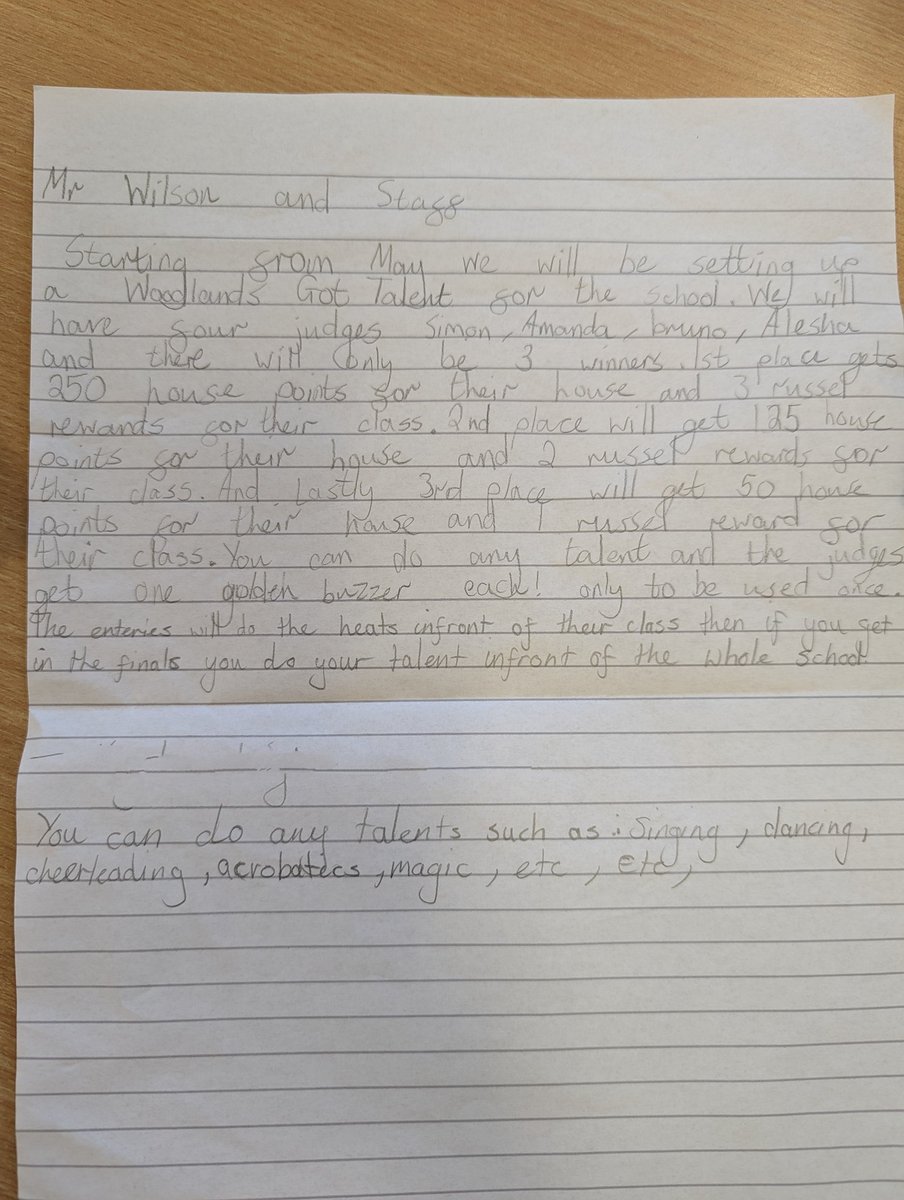 Mr Wilson and Staff
Starting from May we will be setting up
a Woodlands Got Talent for the school. We will
have four judges Simon, Amanda, bruno, Alesha
and there will only be 3 winners. 1st place gets
250 house points for their house and 3 russet
rewards for their class. 2nd place will get 125 house
points for their house and 2 russet rewards for
their class. And Lastly 3rd place will get 50 house
points for their house and 1 russet reward for
their class. You can do any talent and the judges
get one golden buzzer each! only to be used once.
The enteries will do the heats infront of their class then if you get
in the finals you do your talent infront of the whole school
You can do any talents such as: Singing, dancing,
cheerleading, acrobatics, magic, etc, etc,